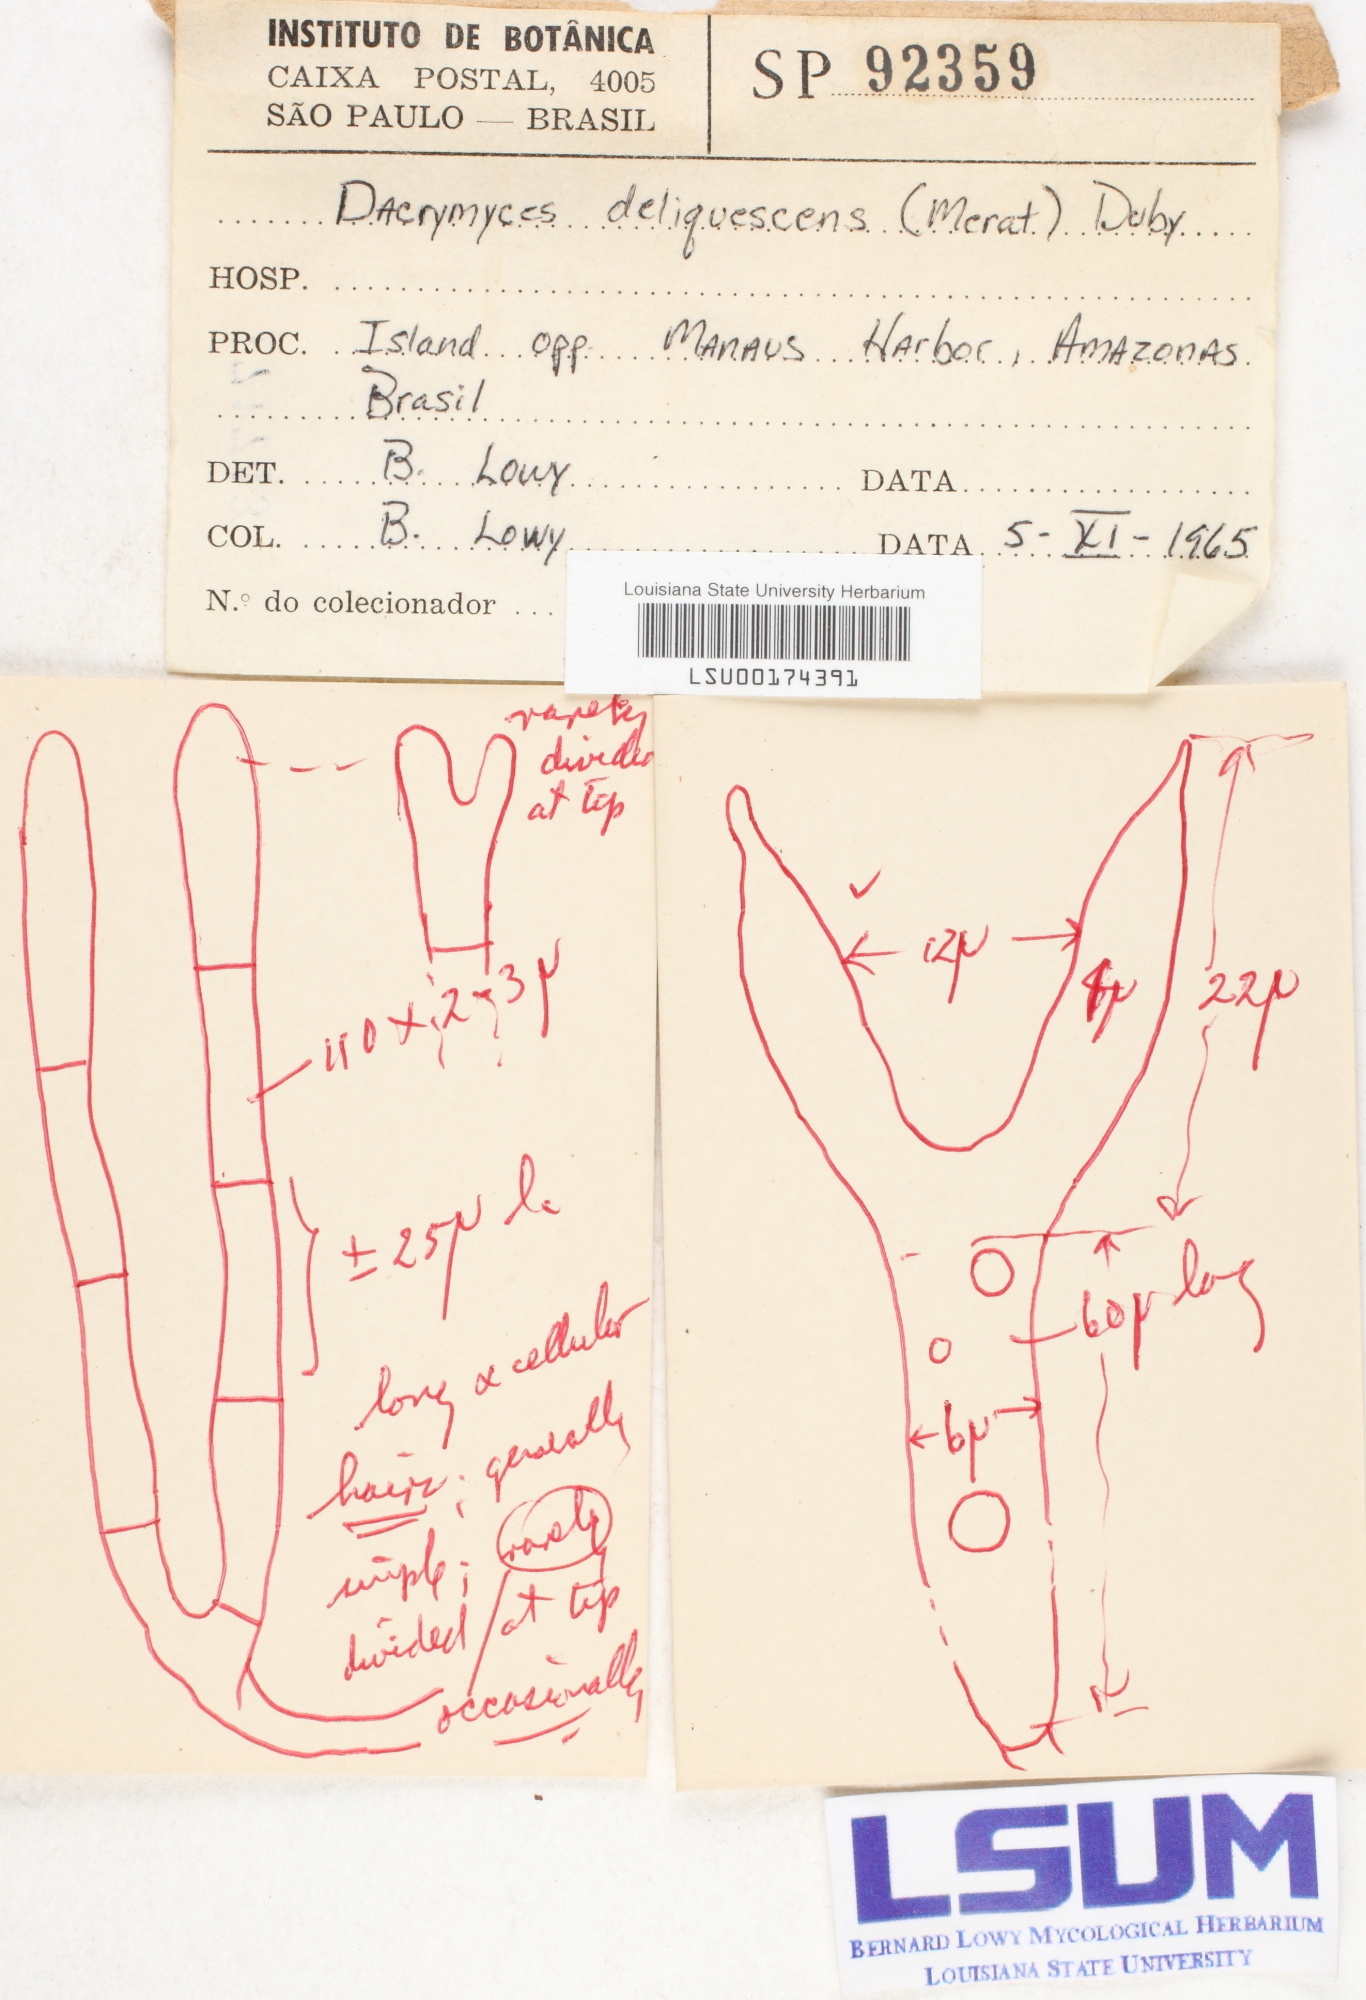 INSTITUTO DE BOTÂNICA
CAIXA POSTAL, 4005
SÃO PAULO — BRASIL
SP 92359
Dacrymyces deliquescens (Merat.) Duby
HOSP.
PROC. Island opp. Manaus Harbor, Amazonas
Brasil
DET. B. Lowy DATA
COL. B. Lowy DATA 5-XI-1965
N.º do colecionador
Louisiana State University Herbarium
LSU00174391
rarely
divided
at tip
110 x 2-3 µ
± 25µ l.
long cellular
hairs; generally
simple; rarely
divided / at tip
occasionally
12µ
22µ
60µ long
6µ
LSUM
BERNARD LOWY MYCOLOGICAL HERBARIUM
LOUISIANA STATE UNIVERSITY